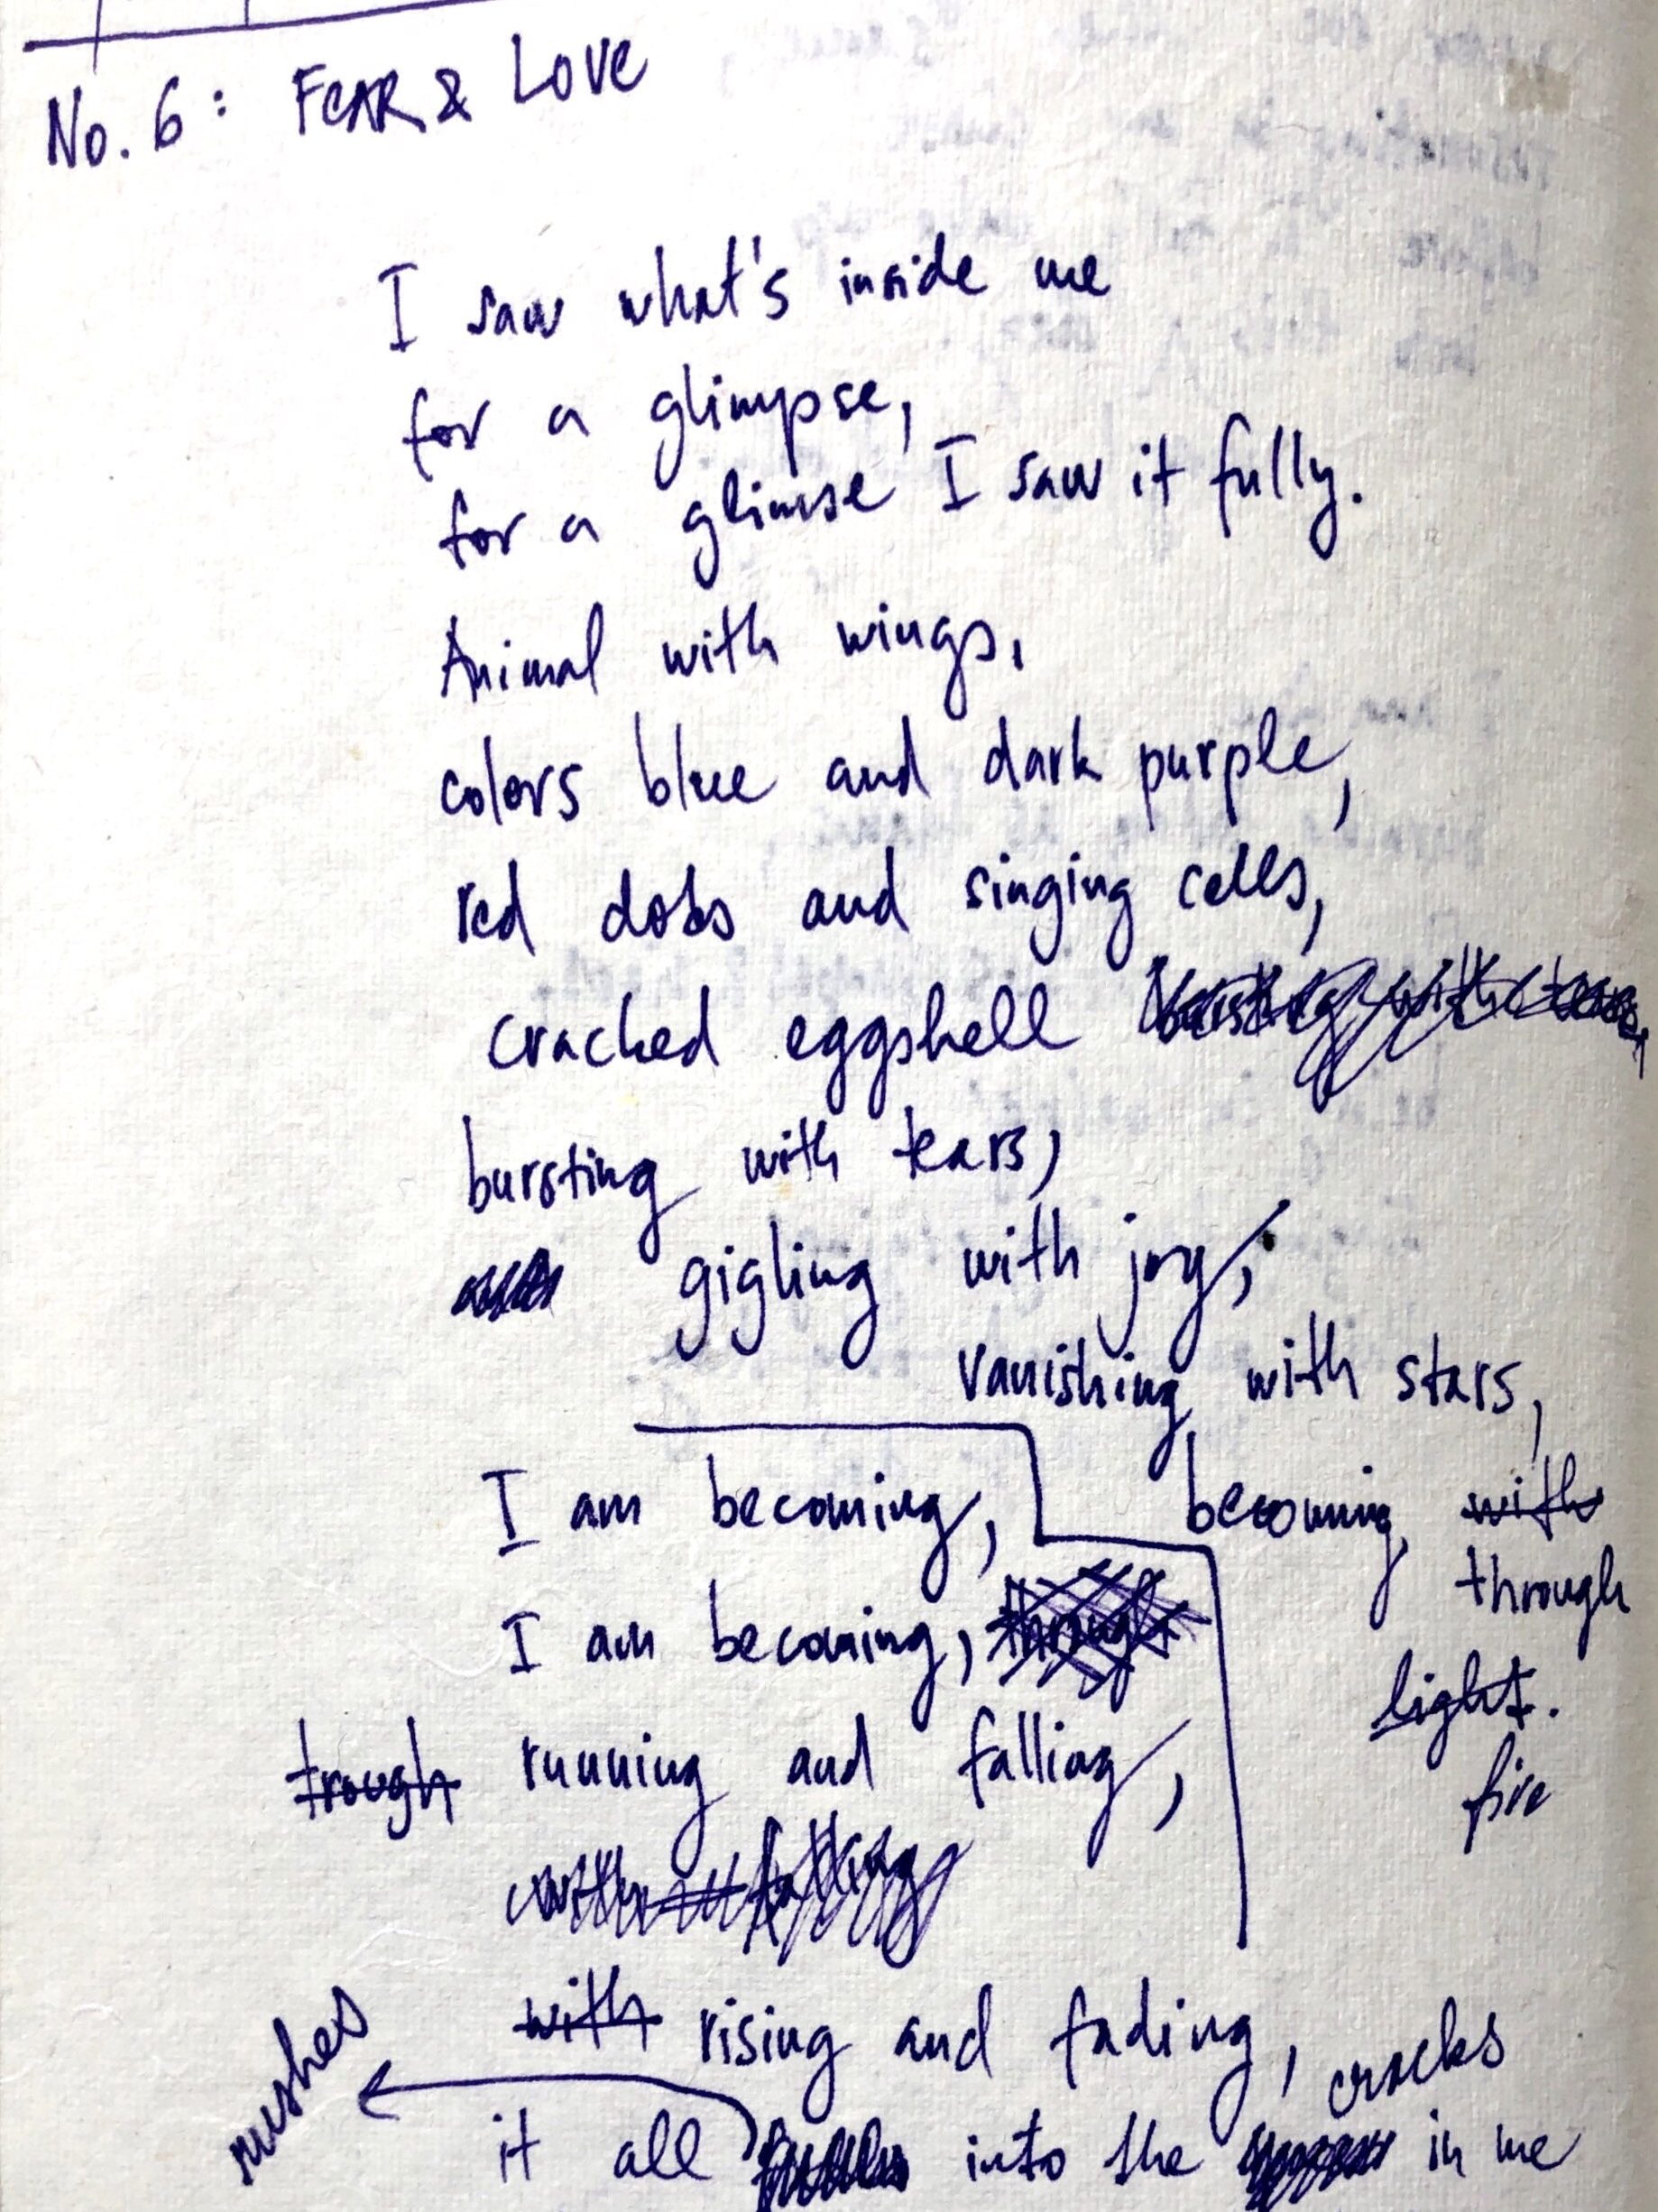 No. 6: FEAR & LOVE
I saw what's inside me
for a glimpse,
for a glimse I saw it fully.
Animal with wings,
colors blue and dark purple,
red dots and singing cells,
cracked eggshell bursting with tears,
bursting with tears,
gigling with joy,
vanishing with stars,
becoming with
through
light.
fire
I am becoming,
I am becoming, through
trough running and falling,
falling
with rising and fading,
rushes
cracks
it all into the in me